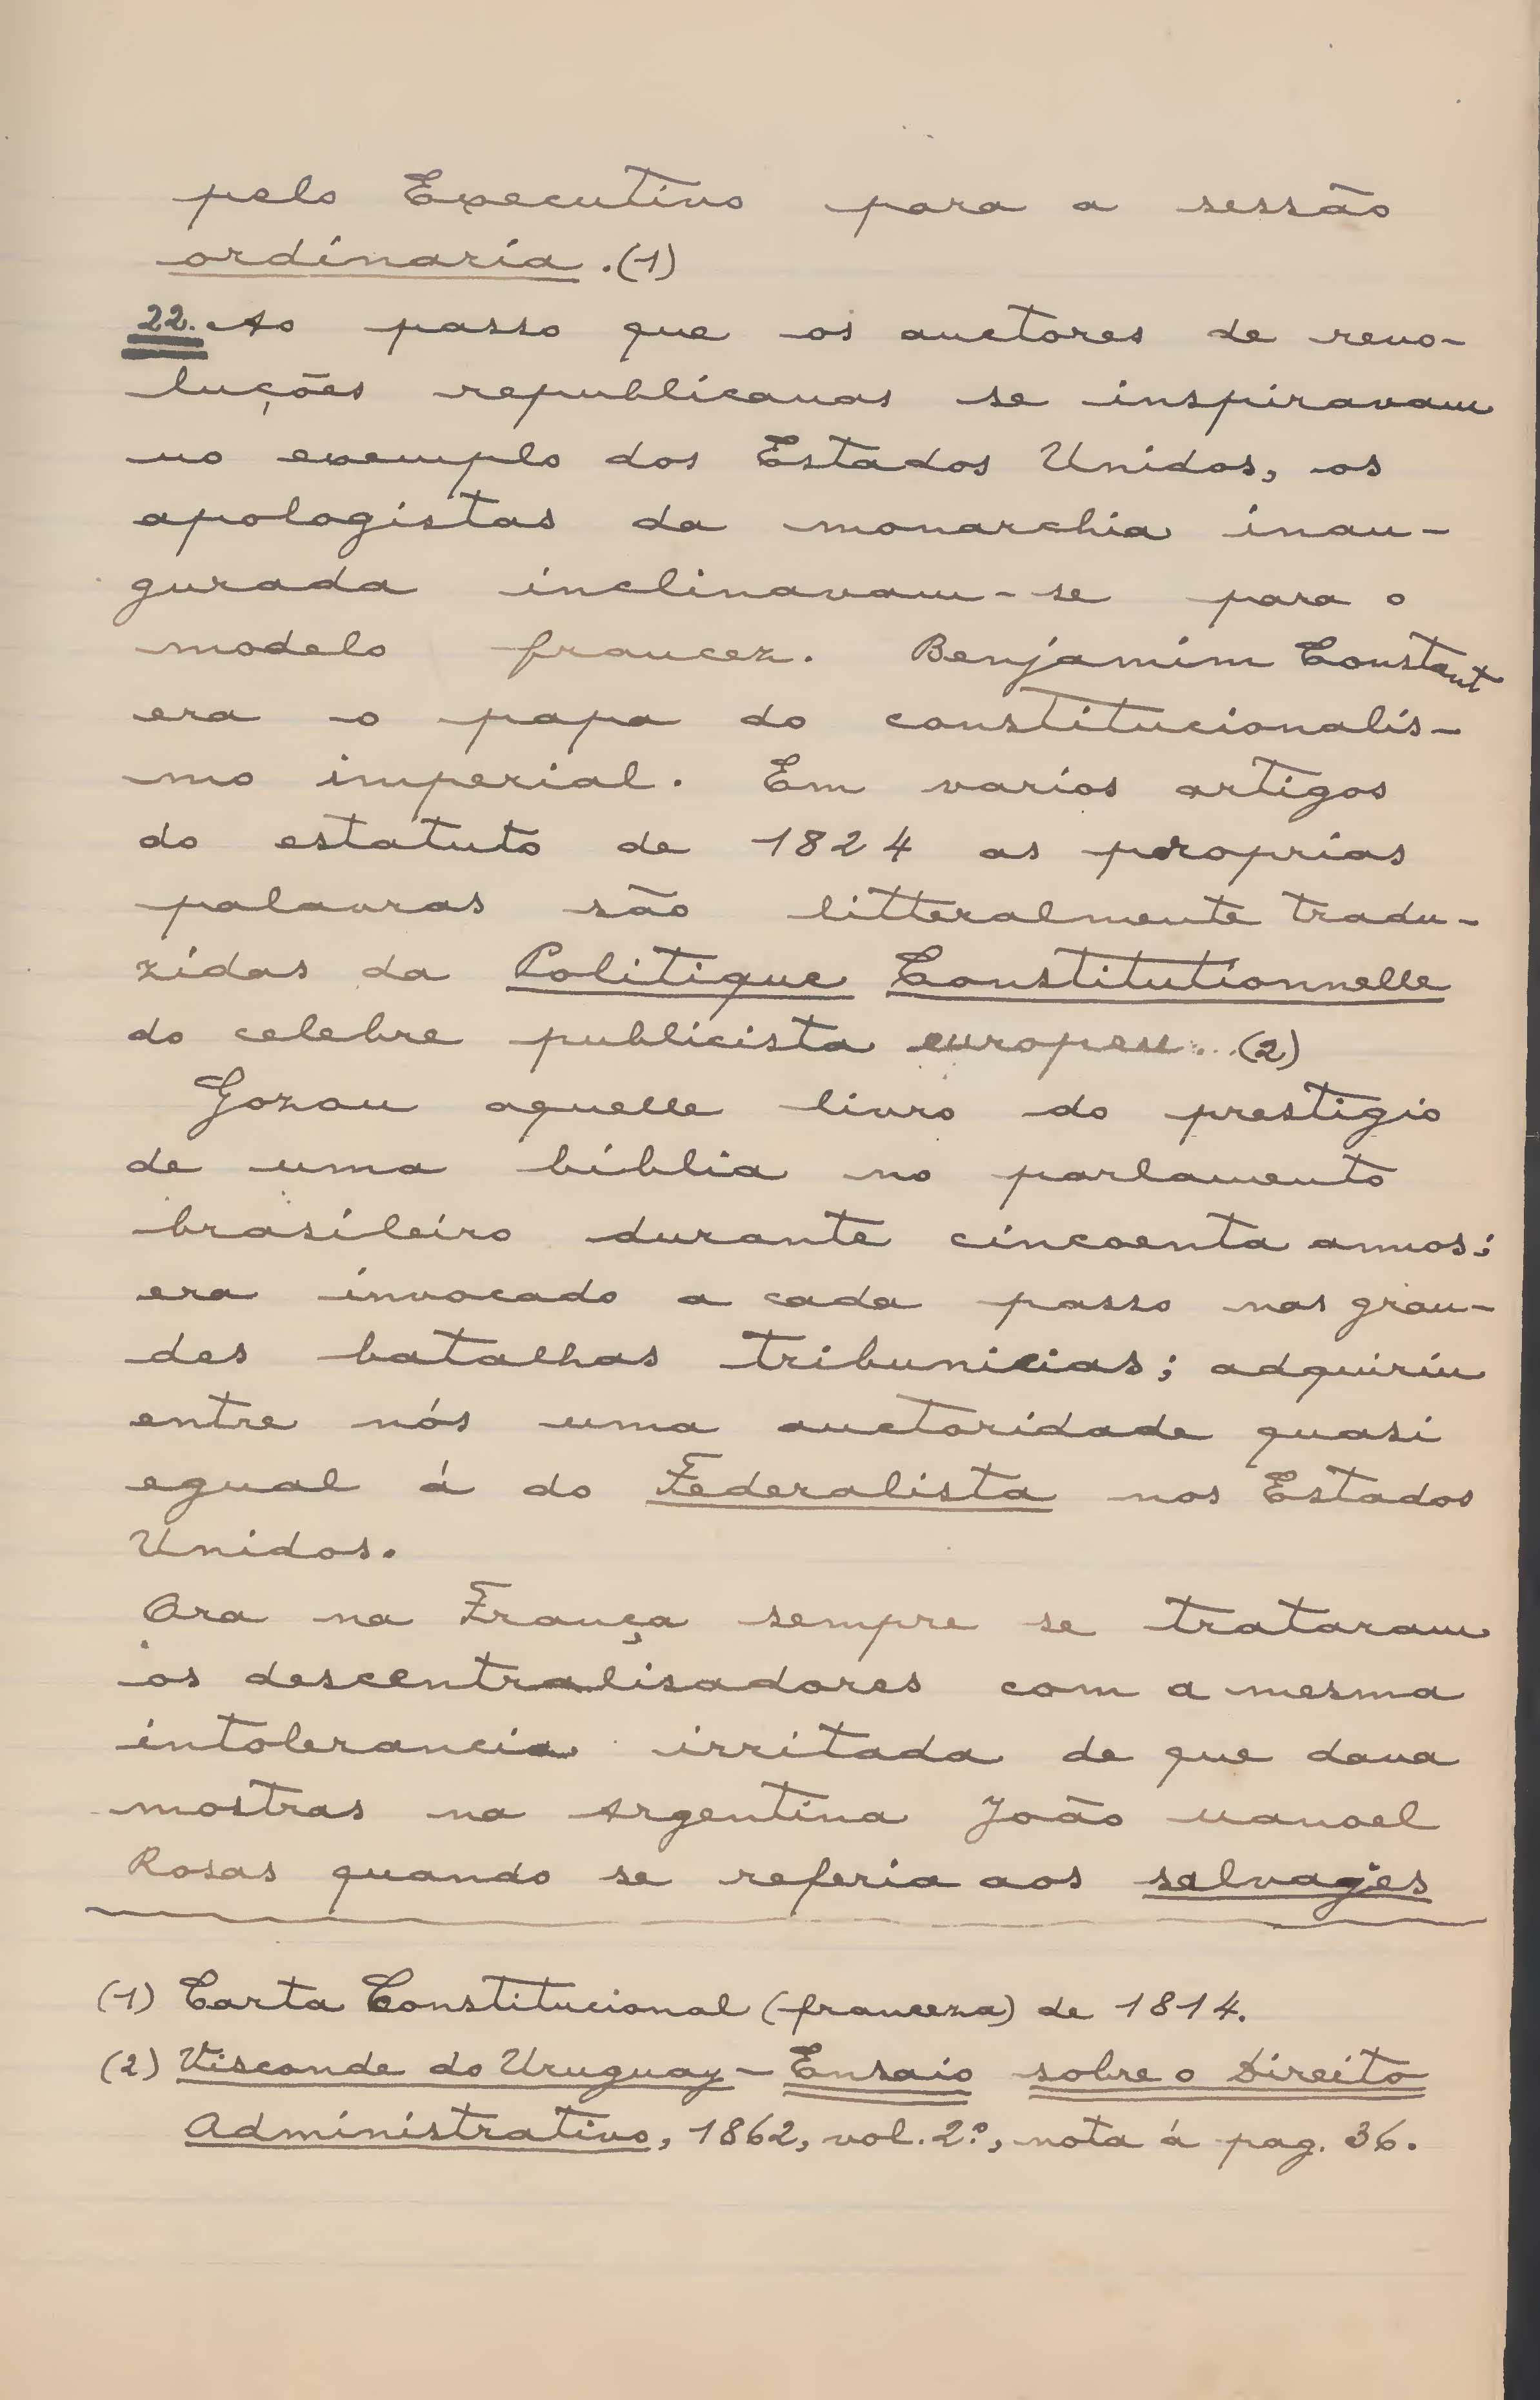 pelo Executivo para a sessão
ordinaria. (1)
22. Ao passo que os auctores de revo-
luções republicanas se inspiravam
no exemplo dos Estados Unidos, os
apologistas da monarchia inau-
gurada inclinavam-se para o
modelo francez. Benjamim Constant
era o papa do constitucionalis-
mo imperial. Em varios artigos
do estatuto de 1824 as proprias
palavras são litteralmente tradu-
zidas da Politique Constitutionnelle
do celebre publicista europeu... (2)
Gozou aquelle livro do prestigio
de uma biblia no parlamento
brasileiro durante cincoenta annos;
era invocado a cada passo nas gran-
des batalhas tribunicias; adquiriu
entre nós uma auctoridade quasi
egual á do Federalista nos Estados
Unidos.
Ora na França sempre se trataram
os descentralisadores com a mesma
intolerancia irritada de que dava
mostras na Argentina João Manoel
Rosas quando se referia aos salvages
(1) Carta Constitucional (franceza) de 1814.
(2) Visconde do Uruguay - Ensaio sobre o Direito
Administrativo, 1862, vol. 2º, nota á pag. 36.